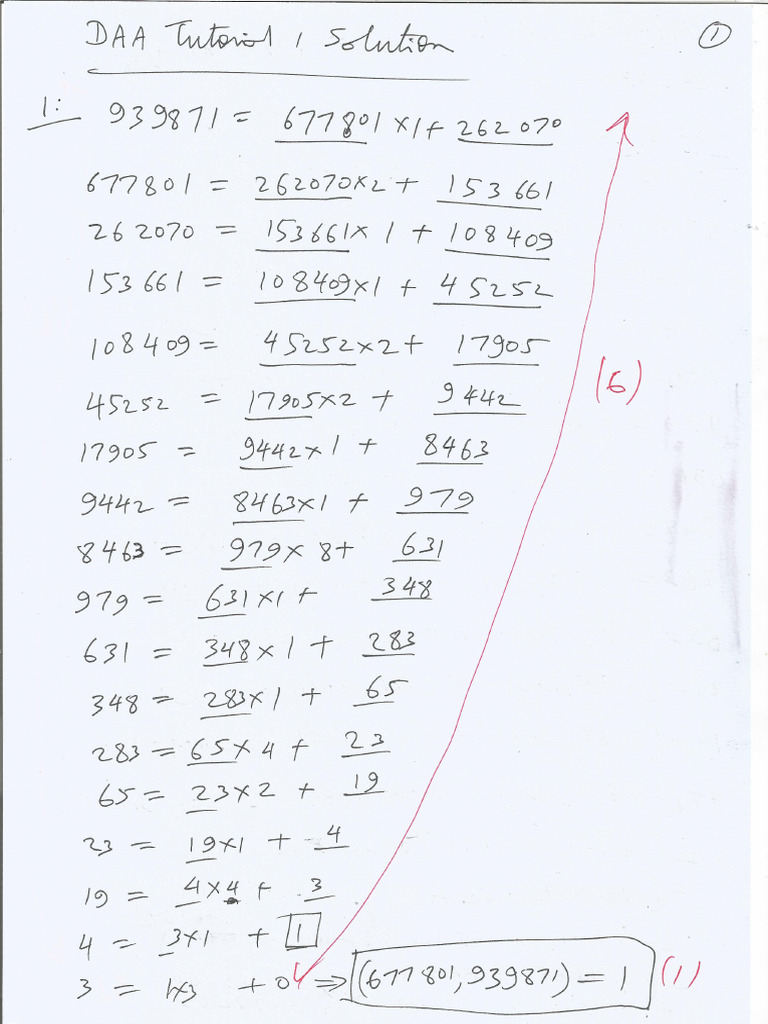 DAA Tutorial 1 Solution
1
1: 939871 = 677801 × 1 + 262070
677801 = 262070 × 2 + 153661
262070 = 153661 × 1 + 108409
153661 = 108409 × 1 + 45252
108409 = 45252 × 2 + 17905
(6)
45252 = 17905 × 2 + 9442
17905 = 9442 × 1 + 8463
9442 = 8463 × 1 + 979
8463 = 979 × 8 + 631
979 = 631 × 1 + 348
631 = 348 × 1 + 283
348 = 283 × 1 + 65
283 = 65 × 4 + 23
65 = 23 × 2 + 19
23 = 19 × 1 + 4
19 = 4 × 4 + 3
4 = 3 × 1 + 1
3 = 1 × 3 + 0 ⇒ (677801, 939871) = 1 (1)